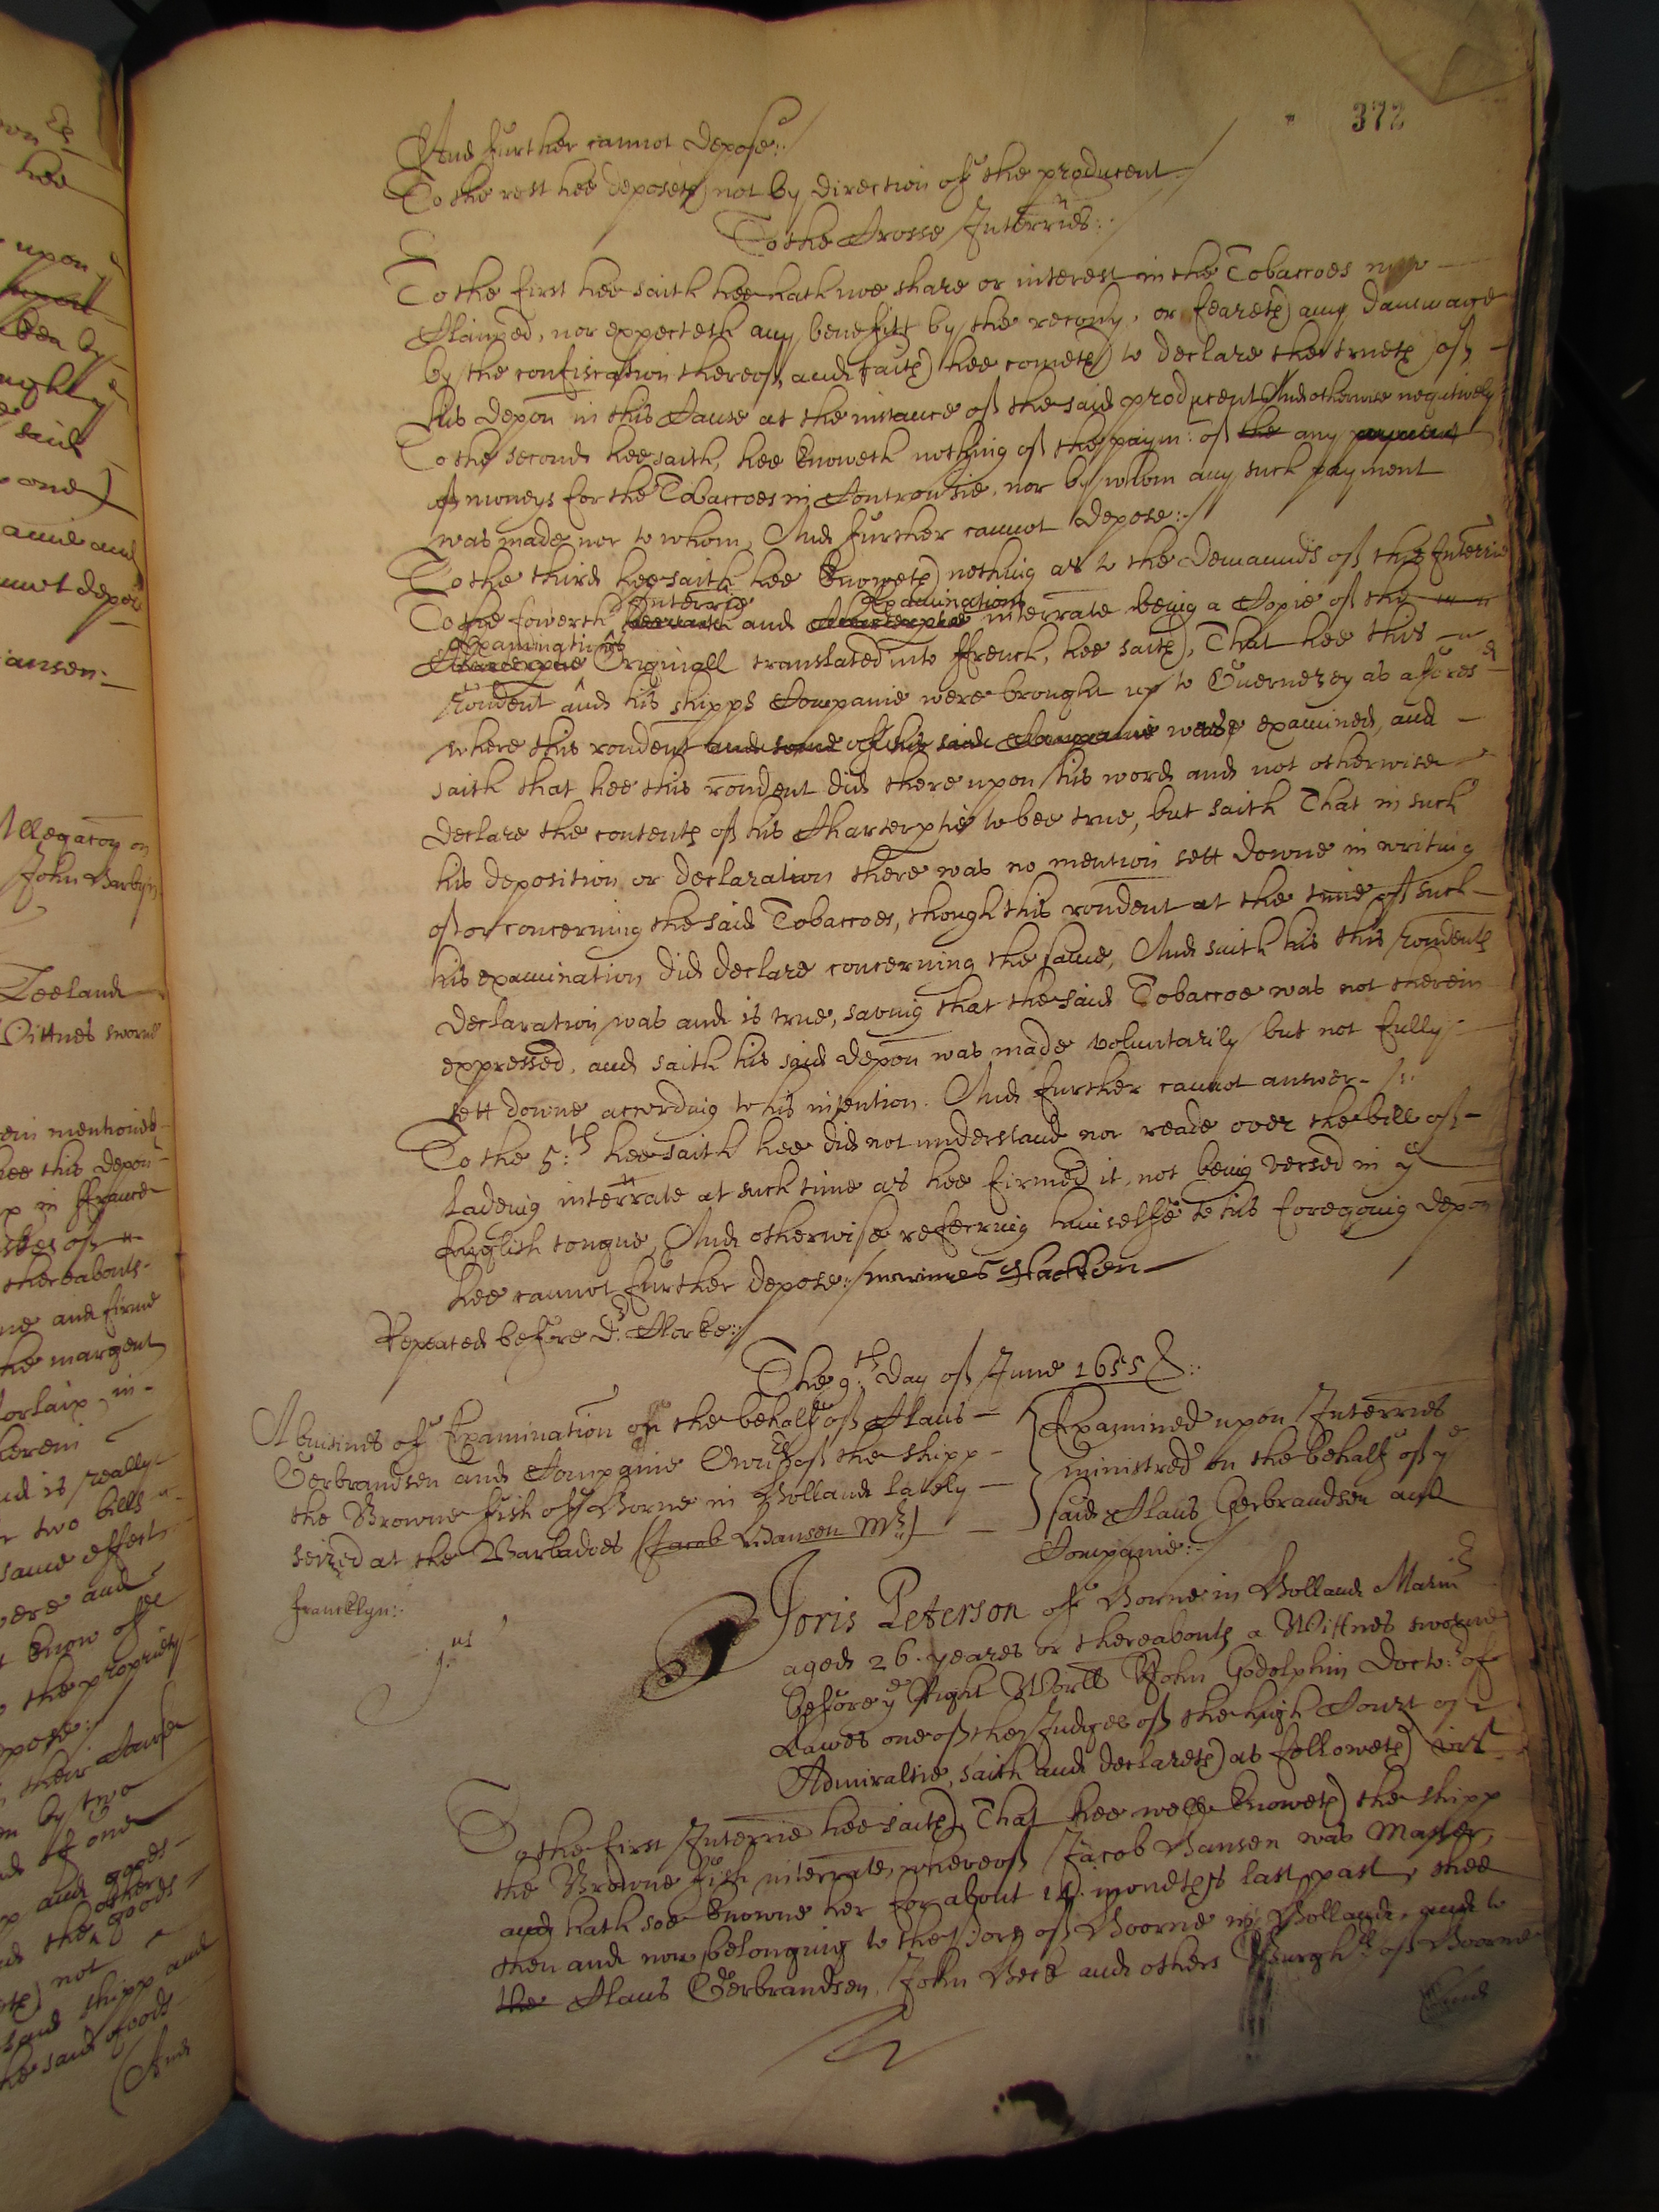 372
And further cannot depose:/
To the rest hee deposeth not by direction of the producent/
To the Crosse Interries:
To the first hee saith hee hath noe share or interest in the Tobaccoes now
Claimed, nor expecteth any benefitt by the recovy, or feareth any dammage
by the confiscation thereof, and saith hee cometh to declare the trueth of
his depon in this Cause at the instance of the said producent And otherwise negatively
To the second hee saith, hee knoweth nothing of the paymt: of the any payment
of moneys for the Tobaccoes in Controv̄sie, nor by whom any such payment
was made nor to whom, And further cannot depose:/
To the third hee saith hee knoweth nothing as to the demaunds of this Interrie
To the fowerth hee saith and Charterptie interrate being a Copie of the
Interrie Examinations
Examinations
Charterptie Originall translated into ffrench, hee saith, That hee this
rondent and his shipps Companie were brought up to Guernezey as aforesd
where this rondent and some of his said Companie were examined, and
saith that hee this rondent did there upon his word and not otherwise
declare the contents of his Charterptie to bee true, but saith That in such
his deposition or declaration there was no mention sett downe in writing
of or concerning the said Tobaccoes, though this rondent at the time of such
his examination did declare concerning the same, And saith his this rondents
declaration was and is true, saving that the said Tobaccoe was not therein
expressed, and saith his said depon was made voluntarily but not fully
sett downe according to his intention. And further cannot answer./:
To the 5:th hee saith hee did not understand nor reade over the bill of
ladeing interrate at such time as hee firmed it, not being versed in ye
English tongue, And otherwise referring himselfe to his foregoing depon
hee cannot further depose:/ marines Hacken
Repeated before Dr. Clarke:/
The 9:th day of June 1655
A businesse of Examination on the behalfe of Claus
Gerbrandsen and Companie Ownrs of the shipp
the Browne fish of Horne in Holland lately
seized at the Barbadoes (Jacob Hansen Mr)
Examined upon Interries
ministred on the behalfe of ye
said Claus Gerbrandsen and
Companie:/
francklyn:
1.us
Joris Peterson of Horne in Holland Marinr
aged 26. yeares or thereabouts a Wittnes sworne
before ye Right Worll John Godolphin Doctor: of
Lawes one of the Judges of the high Court of
Admiraltie, saith and declareth as followeth vizt
To the first Interrie hee saith, That hee well knoweth the shipp
the Browne fish interrate, whereof Jacob Hansen was Master,
and hath soe knowne her for about 14. moneths last past, shee
then and now belonging to the Port of Hoorne in Holland, and to
the Claus Gerbrandsen, John Beck and others Burghrs of Hoorne
And
upon
said
one)
Allegacon on
John Barbyn
Zeeland
Wittnes sworne
mentioned
hee this depont
in ffrance
thereabouts
and firme
the margent
is really
two bills
same effect
know of
the propriety
their
by two
of one
and goods
others
the goods
not
said shipp and
the said goods
(And